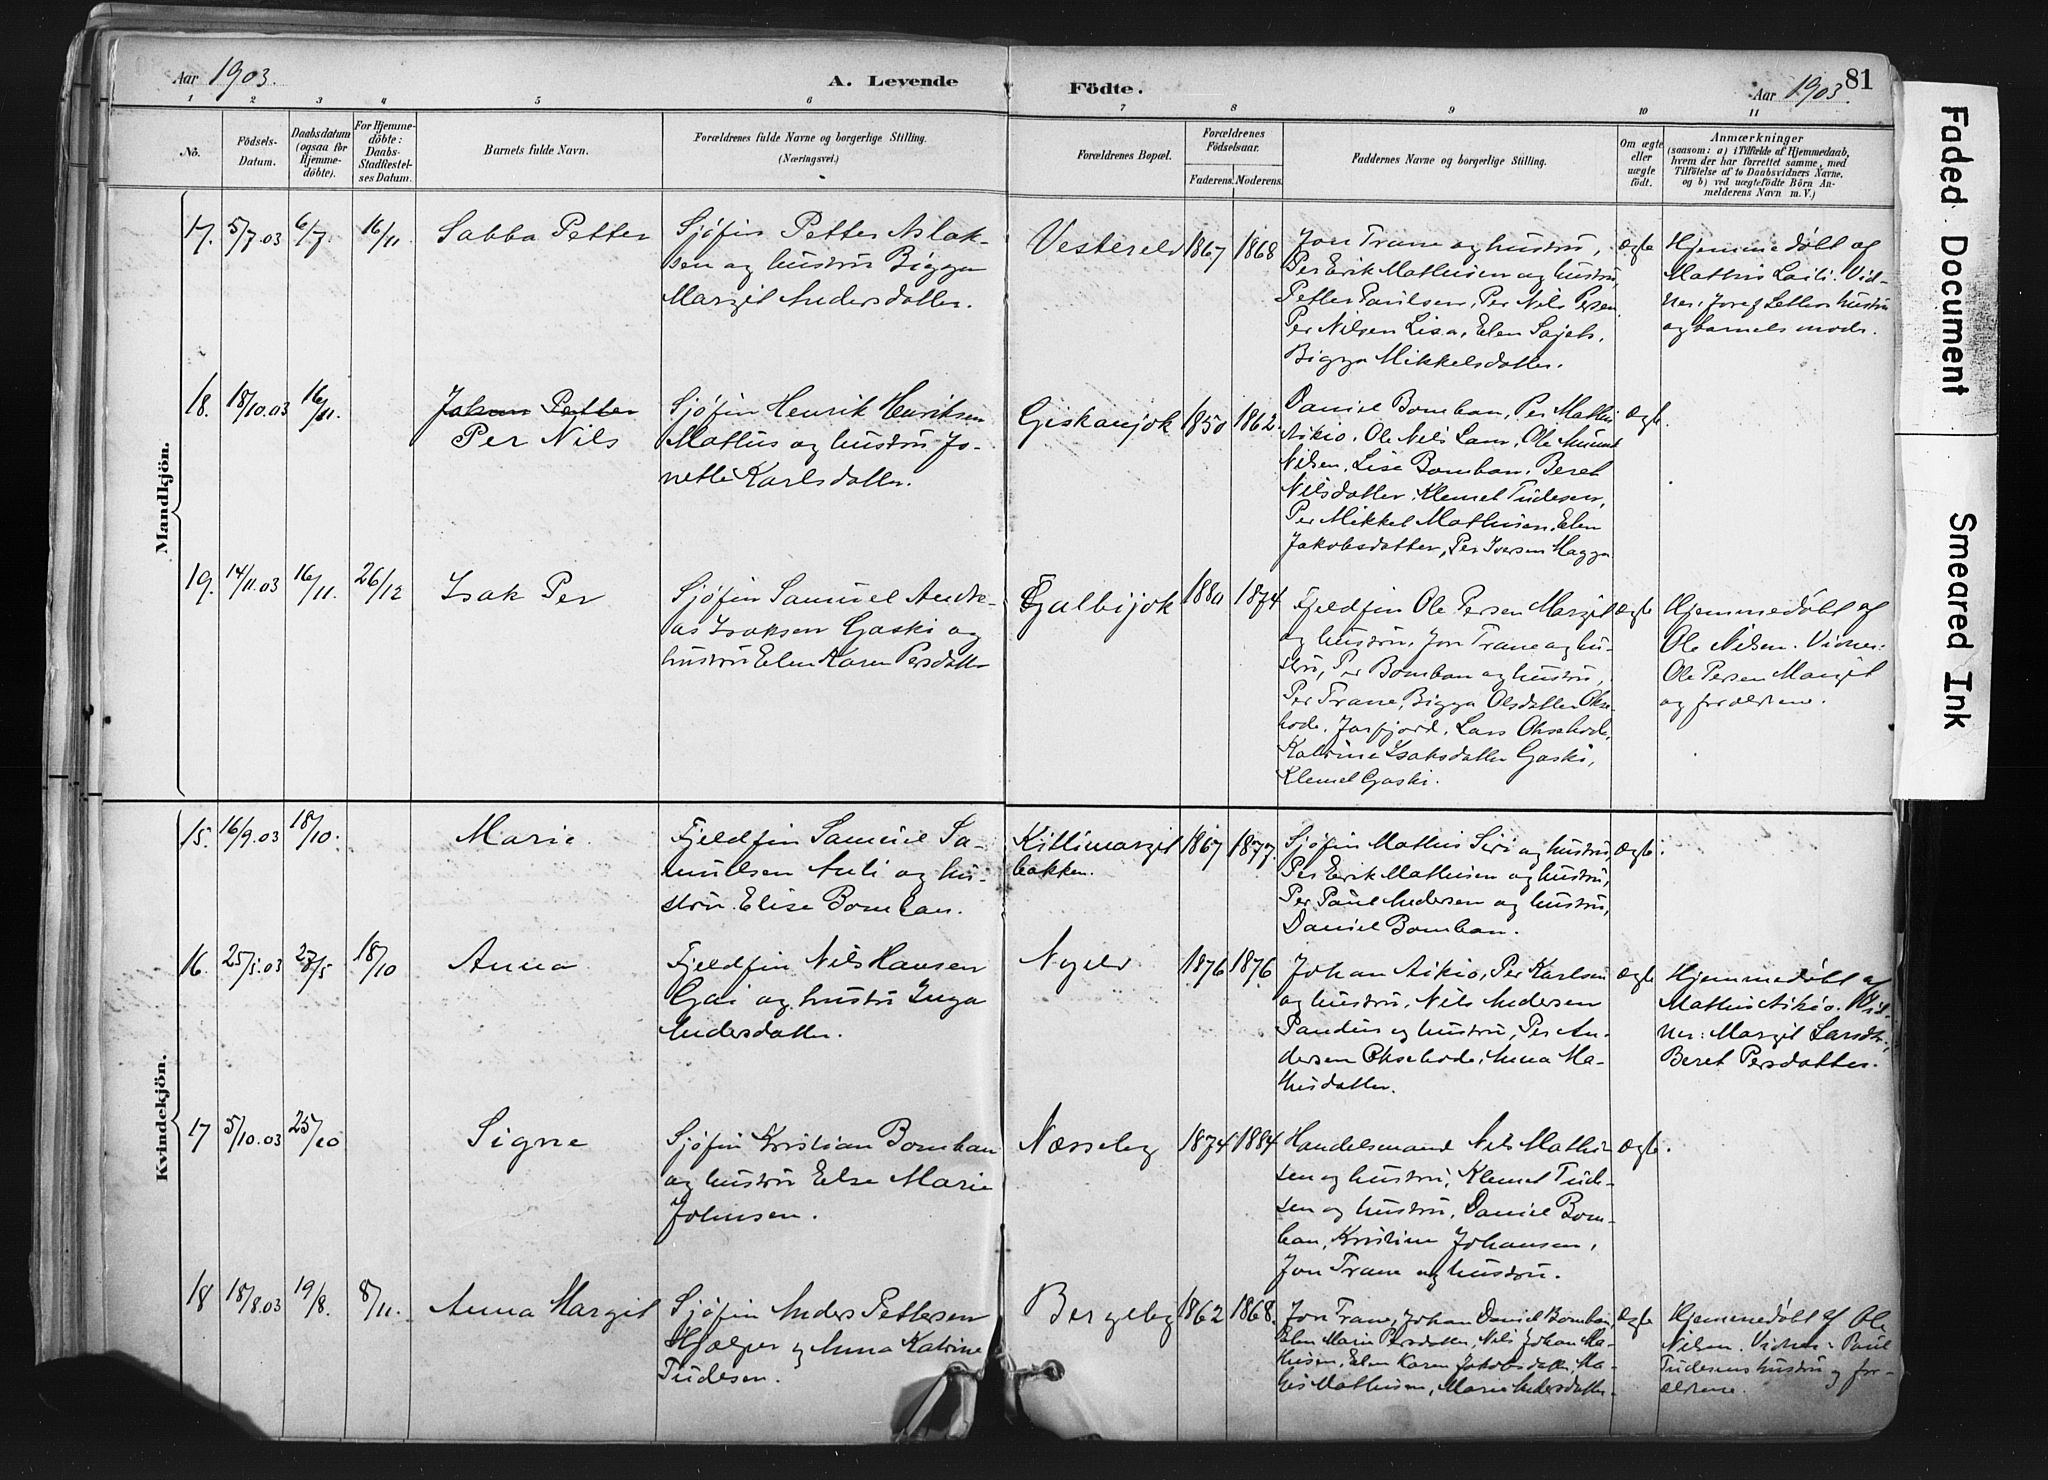 Aar 1903.
A. Levende
Födte.
Aar 1903.
81
1 2 3 4 5 6 7 8 9 10 11
No.
Födsels-
Datum.
Daabsdatum
(ogsaa for
Hjemme-
döbte).
For Hjemme-
döbte:
Daabs-
Stadfæstel-
ses Datum.
Barnets fulde Navn.
Forældrenes fulde Navne og borgerlige Stilling.
(Næringsvei.)
Forældrenes Bopæl.
Forældrenes
Födselsaar.
Faderens. Moderens.
Faddernes Navne og borgerlige Stilling.
Om ægte
eller
uægte
födt.
Anmærkninger
(saasom: a) i Tilfælde af Hjemmedaab,
hvem der har forrettet samme, med
Tilföielse af to Daabsvidners Navne.
og b) ved uægtefödte Börn An-
melderens Navn m. V.)
Mandkjön.
17. 5/7.03 6/7. 16/11. Sabba Petter
Sjøfin Petter Aslak-
sen og hustru Bigga
Margit Andersdatter.
Vestereld 1867 1868
Jon Trane og hustru,
Per Erik Mathisen og hustru,
Petter Paulsen, Per Nils Persen
Per Nilsen Lisa, Elen
Bigga Mikkelsdatter.
ægte
Hjemmedøbt af
Mathis Vid-
ner: Josef hustru
og barnets moder.
18. 18/10.03 16/11. Johan Petter
Per Nils
Sjøfin Henrik Henriksen
Mathus og hustru Jo-
nette Karlsdatter.
Giskanjok 1850 1862.
Daniel Bomban, Per Mathis
Aikio, Ole Nils Lam, Ole Amund
Nilsen, Lise Bomban, Beret
Nilsdatter, Klemet Tudesen,
Per Mikkel Mathisen, Elen
Jakobsdatter, Per Iversen Magga
ægte.
19. 14/11.03 16/11. 26/12 Isak Per
Sjøfin Samuel Andre-
as Isaksen Gaski og
hustru Elen Karen Persdatter
Galbijok 1880 1874
Fjeldfin Ole Persen Margit
og hustru, Jon Trane og hu-
stru, Per Bomban og hustru,
Per Trane, Bigga Olsdatter Okse-
hode, Jarfjord, Lars Oksehode,
Katrine Isaksdatter Gaski,
Klemet Gaski.
ægte
Hjemmedøbt af
Ole Nilsen. Vidner:
Ole Persen Margit
og forældrene.
Kvindekjön.
15. 16/9.03 18/10. Marie.
Fjeldfin Samuel Sa-
muelsen Anti og hu-
stru Elise Bomban.
Kittimargit
bakken. 1867 1877.
Sjøfin Mathis Siri og hustru
Per Erik Mathisen og hustru,
Per Paul Andersen og hustru,
Daniel Bomban.
ægte.
16. 25/5.03 28/5 18/10 Anna
Fjeldfin Nils Hansen
Gai og hustru Inga
Andersdatter.
Nyelv 1876 1876
Johan Aikio, Per Karlsen
og hustru, Nils Andersen
Pandus og hustru, Per An-
dersen Oksehode, Anna Ma-
thisdatter.
ægte
Hjemmedøbt af
Mathis Aikio. Vid-
ner: Margit Larsdtr.,
Beret Persdatter.
17 5/10.03 25/10 Signe
Sjøfin Kristian Bomban
og hustru Else Marie
Johnsen.
Næsseby 1874 1884
Handelsmand Nils Mathi-
sen og hustru, Klemet Tude-
sen og hustru, Daniel Bom-
ban, Kristine Johansen,
Jon Trane og hustru.
ægte.
18 18/8.03 19/8. 8/11. Anna Margit
Sjøfin Anders Pettersen
Hjelper og Anna Katrine
Tudesen.
Bergeby 1862 1868.
Jon Trane, Johan Daniel Bomban,
Elen Marie Persdatter, Nils Johan Ma-
thisen, Elen Karen Jakobsdatter, Ma-
this Mathisen, Marie Andersdatter.
ægte
Hjemmedøbt af Ole
Nilsen. Vidner: Paul
Tudesens hustru og for-
ældrene.
Faded Document
Smeared Ink